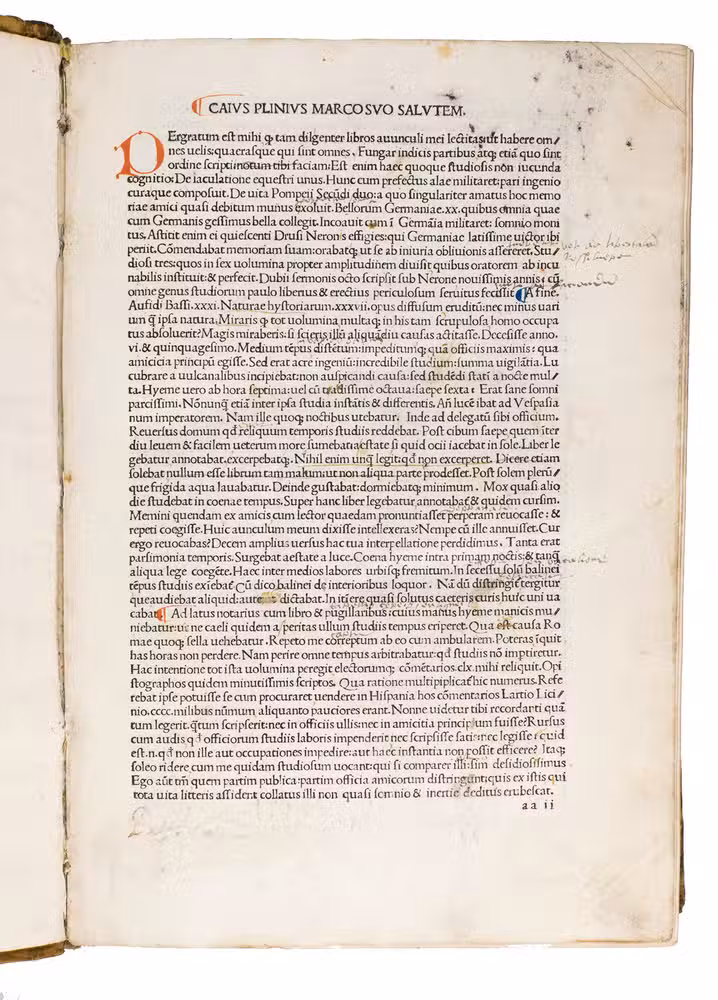 CAIVS PLINIVS MARCO SVO SALVTEM.
PErgratum est mihi ꝙ tam dilgenter libros auunculi mei lectitas:ut habere om/
nes uelis:quaerasque qui sint omnes. Fungar indicis partibus atqꝫ etiā quo sint
ordine scripti:notum tibi faciam:Est enim haec quoque studiosis non iucunda
cognitio: De iaculatione equestri unus. Hunc cum prefectus alae militaret:pari ingenio
curaque composuit. De uita Pompeii Secūdi duo:a quo singulariter amatus hoc memo
riae amici quasi debitum munus exoluit. Bellorum Germaniae.xx.quibus omnia quae
cum Germanis gessimus bella collegit. Incoauit cum ī Germāia militaret: somnio moni
tus. Astitit enim ei quiescenti Drusi Neronis effigies:qui Germaniae latissime uictor ibi
periit. Cōmendabat memoriam suam:orabatqꝫ ut se ab iniuria obliuionis assereret. Stu/
diosi tres:quos in sex uolumina propter amplitudinem diuisit quibus oratorem ab incu
nabilis instituit:& perfecit. Dubii sermonis octo scripsit sub Nerone nouissimis annis: cū
omne genus studiorum paulo liberius & erectius periculosum seruitus fecissit. A fine.
Aufidi Bassi.xxxi. Naturae hystoriarum.xxxvii. opus diffusum eruditū:nec minus uari
um ꝗ̄ ipsa natura. Miraris ꝙ tot uolumina multaqꝫ in his tam scrupulosa homo occupa
tus absoluerit? Magis miraberis:si scieris illū aliquādiu causas actitasse. Decessisse anno.
vi.& quinquagesimo. Medium tēpus distētum:impeditumqꝫ quā officiis maximis: qua
amicitia principū egisse. Sed erat acre ingeniū:incredibile studium:summa uigilātia. Lu
cubrare a uulcanalibus incipiebat:non auspicandi causa:sed studēdi statī a nocte mul/
ta. Hyeme uero ab hora septima:uel cū tardissime octaua:saepe sexta: Erat sane somni
parcissimi. Nōnunꝗ̄ etiā inter ipsa studia instātis & differentis. An̄ lucē ibat ad Vespasia
num imperatorem. Nam ille quoqꝫ noctibus utebatur. Inde ad delegatū sibi officium.
Reuersus domum qd̄ reliquium temporis studiis reddebat. Post cibum saepe quem īter
diu leuem & facilem ueterum more sumebat:aestate si quid ocii iacebat in sole. Liber le
gebatur annotabat.excerpebatqꝫ. Nihil enim unꝗ̄ legit:qd̄ non excerperet. Dicere etiam
solebat nullum esse librum tam malum:ut non aliqua parte prodesset. Post solem plerū/
que frigida aqua lauabatur. Deinde gustabat:dormiebatqꝫ minimum. Mox quasi alio
die studebat in coenae tempus. Super hanc liber legebatur annotabat & quidem cursim.
Memini quendam ex amicis cum lector quaedam pronuntiasset perperam reuocasse: &
repeti coegisse. Huic aunculum meum dixisse intellexeras? Nempe cū ille annuisset. Cur
ergo reuocabas? Decem amplius uersus hac tua interpellatione perdidimus. Tanta erat
parsimonia temporis. Surgebat aestate a luce. Coena hyeme intra primam noctis:& tanꝗ̄
aliqua lege cogēte. Haec inter medios labores urbisqꝫ fremitum. In secessu solū balinei
tēpus studiis exiebat Cū dico balinei de interioribus loquor. Nā dū distringit tergitur
que audiebat aliquid:aut dictabat. In itīere quasi solutus caeteris curis huic uni ua
cabat. Ad latus notarius cum libro & pugillaribus:cuius manus hyeme manicis mu/
niebatur:ut ne caeli quidem asperitas ullum studiis tempus eriperet. Qua est causa Ro
mae quoqꝫ sella uehebatur. Repeto me correptum ab eo cum ambularem. Poteras īquit
has horas non perdere. Nam perire omne tempus arbitrabatur:qd̄ studiis nō imptiretur.
Hac intentione tot ista uolumina peregit electorumqꝫ cōmētarios.clx.mihi reliquit. Opi
stographos quidem minutissimis scriptos. Qua ratione multiplicat hic numerus. Refe
rebat ipse potuisse se cum procuraret uendere in Hispania hos cōmentarios Lartio Lici/
nio.cccc.milibus nūmum aliquanto pauciores erant. Nonne uidetur tibi recordanti quā
tum legerit.ꝗ̄tum scripserit:nec in officiis ullis:nec in amicitia principum fuisse? Rursus
cum audis qd̄ officiorum studiis laboris impenderit nec scripsisse satis:nec legisse: quid
est.n.qd̄ non ille aut occupationes impedire:aut haec instantia non possit efficere? Itaqꝫ
soleo ridere cum me quidam studiosum uocant:qui si comparer illi:sim desidiosissimus
Ego aūt tm̄ quem partim publica:partim officia amicorum distringunt:quis ex istis qui
tota uita litteris assident collatus illi non quasi somnio & inertie deditus erubescat.
aa ii